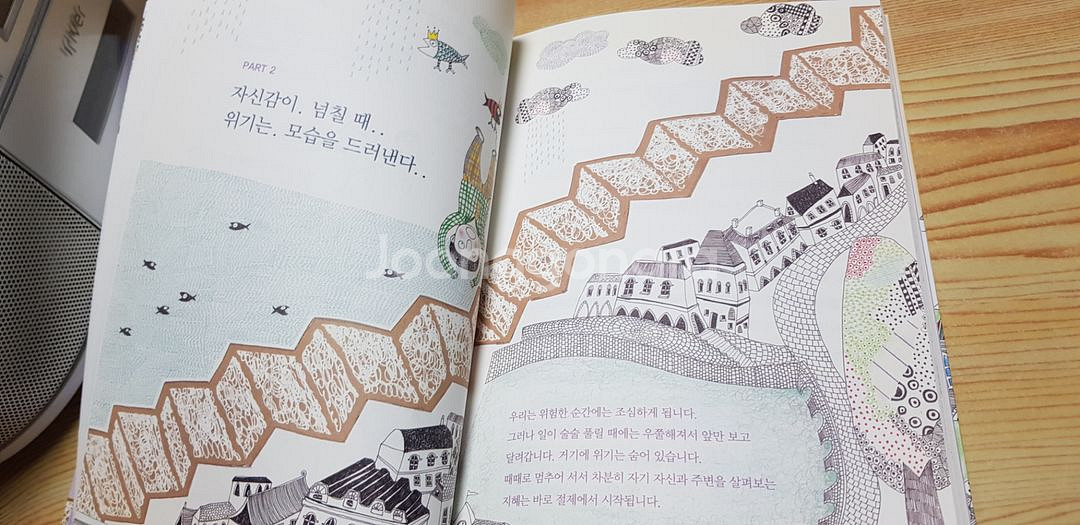 PART 2
자신감이. 넘칠 때..
위기는. 모습을 드러낸다..
우리는 위험한 순간에는 조심하게 됩니다.
그러나 일이 술술 풀릴 때에는 우쭐해져서 앞만 보고
달려갑니다. 거기에 위기는 숨어 있습니다.
때때로 멈추어 서서 차분히 자기 자신과 주변을 살펴보는
지혜는 바로 절제에서 시작됩니다.